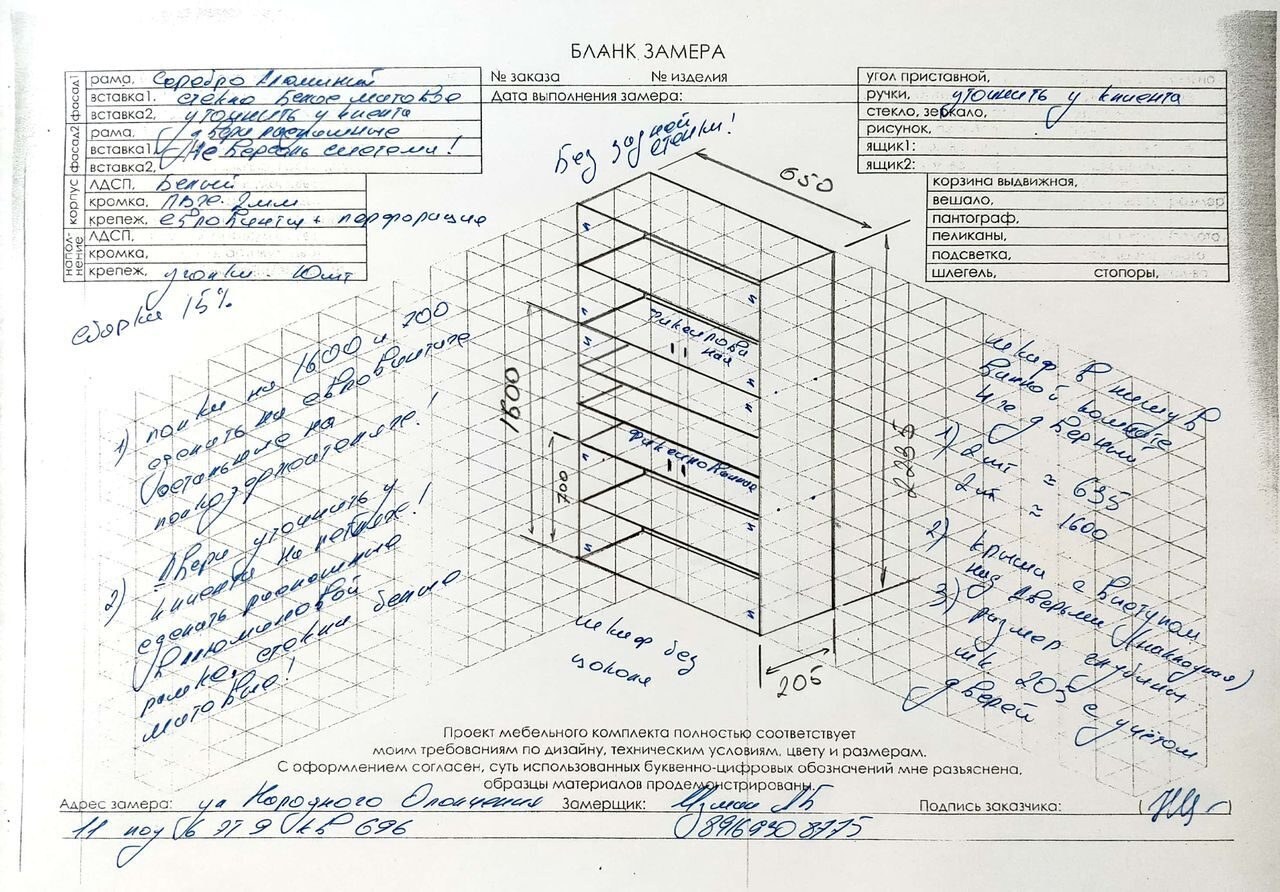 БЛАНК ЗАМЕРА
фасад1
рама, Серебро Алюминий
вставка1, стекло Белое матовое
вставка2, уточнить у клиента
фасад2
рама, двери распашные
вставка1, Не Версаль системы!
вставка2,
корпус
ЛДСП, Белый
кромка, ПВХ 2мм
крепеж, евровинты + перфорация
напол-
нение
ЛДСП,
кромка,
крепеж, уголки 10шт
сборка 15%
№ заказа № изделия
Дата выполнения замера:
угол приставной,
ручки, уточнить у клиента
стекло, зеркало,
рисунок,
ящик1:
ящик2:
корзина выдвижная,
вешало,
пантограф,
пеликаны,
подсветка,
шлегель, стопоры,
Без задней
стенки!
650
1600
700
2235
205
фиксирова
ная
фиксированная
1) полки на 1600 и 700
сделать на евровинтаже
остальные на
полкодержателе!
2) Двери уточнить у
клиента на петлях!
сделать распашные
в алюминиевой
рамке, стекла белые
матовые!
шкаф в нишу в
ванной комнате
4ге дверный
1) 2шт ≈ 635
2шт ≈ 1600
2) крыша с выступом
над дверьми (накладная)
3) размер глубины
шк 205 с учётом
дверей
шкаф без
цоколя
Проект мебельного комплекта полностью соответствует
моим требованиям по дизайну, техническим условиям, цвету и размерам.
С оформлением согласен, суть использованных буквенно-цифровых обозначений мне разъяснена,
образцы материалов продемонстрированы.
Адрес замера: ул Народного Ополчения Замерщик: Подпись заказчика: ( )
11 под 6 эт 9 кв 696 8916930 8775